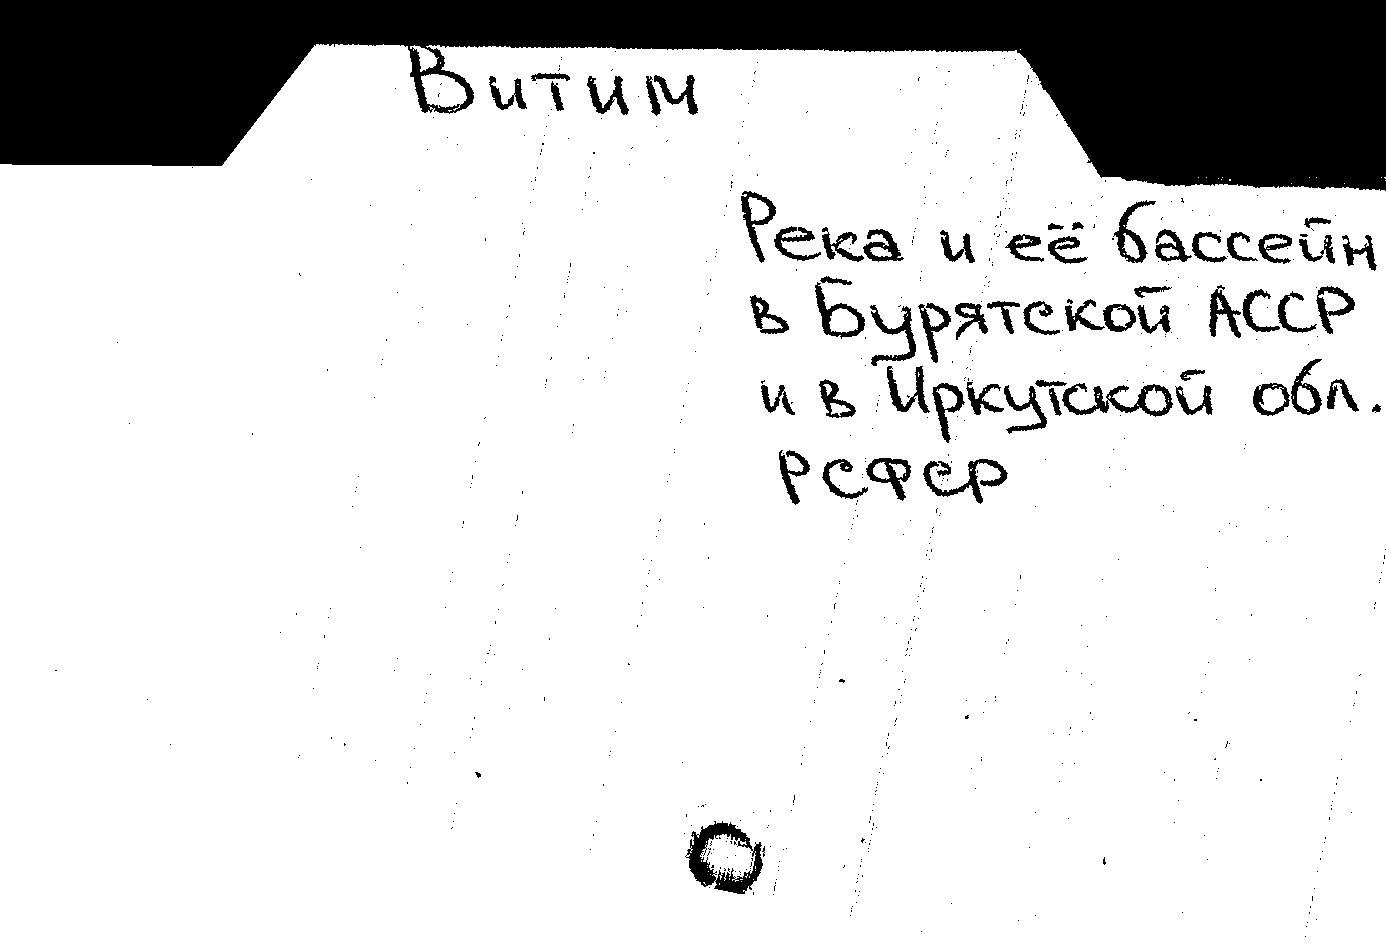 Витим
Река и её бассейн
в Бурятской АССР
и в Иркутской обл.
РСФСР